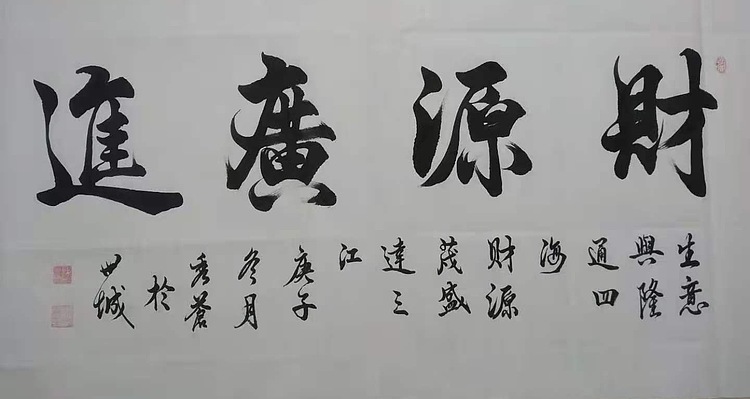 財源廣進
生意
興隆
通四
海
財源
茂盛
達三
江
庚子
冬月
秀蒼
於
世城